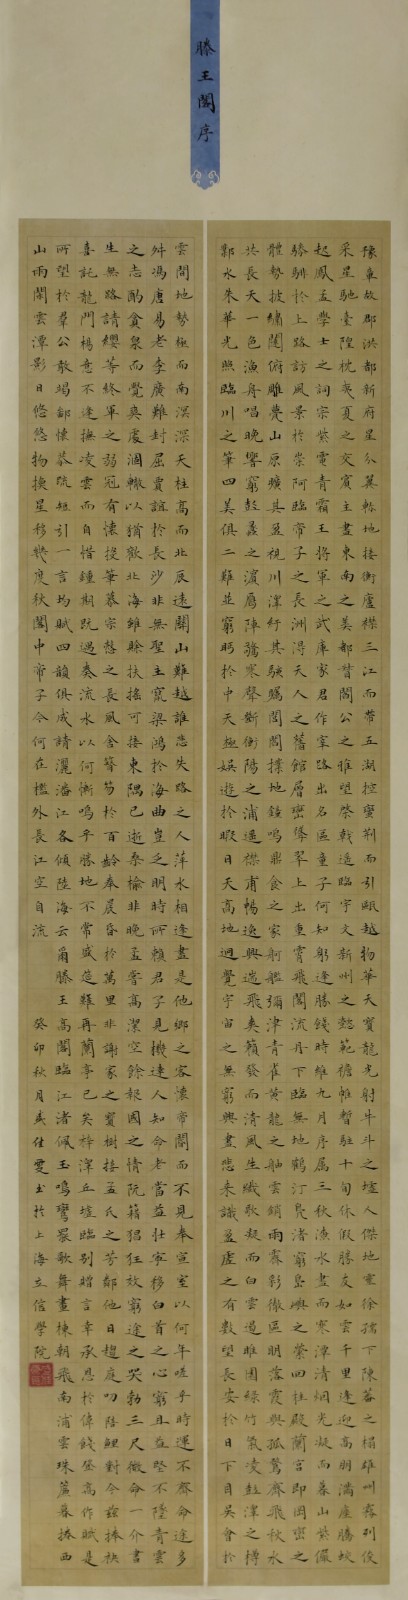 滕王閣序
豫章故郡洪都新府星分翼軫地接衡廬襟三江而帶五湖控蠻荊而引甌越物華天寶龍光射牛斗之墟人傑地靈徐孺下陳蕃之榻雄州霧列俊
采星馳臺隍枕夷夏之交賓主盡東南之美都督閻公之雅望棨戟遙臨宇文新州之懿範襜帷暫駐十旬休假勝友如雲千里逢迎高朋滿座騰蛟
起鳳孟學士之詞宗紫電青霜王將軍之武庫家君作宰路出名區童子何知躬逢勝餞時維九月序屬三秋潦水盡而寒潭清烟光凝而暮山紫儼
驂騑於上路訪風景於崇阿臨帝子之長洲得天人之舊館層巒聳翠上出重霄飛閣流丹下臨無地鶴汀鳧渚窮島嶼之縈回桂殿蘭宮即岡巒之
體勢披繡闥俯雕甍山原曠其盈視川澤紆其駭矚閭閻撲地鐘鳴鼎食之家舸艦彌津青雀黃龍之舳雲銷雨霽彩徹區明落霞與孤鶩齊飛秋水
共長天一色漁舟唱晚響窮彭蠡之濱雁陣驚寒聲斷衡陽之浦遙襟甫暢逸興遄飛爽籟發而清風生纖歌凝而白雲遏睢園綠竹氣凌彭澤之樽
鄴水朱華光照臨川之筆四美俱二難並窮眄於中天極娛遊於暇日天高地迥覺宇宙之無窮興盡悲來識盈虛之有數望長安於日下目吳會於
雲間地勢極而南溟深天柱高而北辰遠關山難越誰悲失路之人萍水相逢盡是他鄉之客懷帝閽而不見奉宣室以何年嗟乎時運不齊命途多
舛馮唐易老李廣難封屈賈誼於長沙非無聖主竄梁鴻於海曲豈乏明時所賴君子見機達人知命老當益壯寧移白首之心窮且益堅不墜青雲
之志酌貪泉而覺爽處涸轍以猶歡北海雖賒扶搖可接東隅已逝桑榆非晚孟嘗高潔空餘報國之情阮籍猖狂效窮途之哭勃三尺微命一介書
生無路請纓等終軍之弱冠有懷投筆慕宗慤之長風舍簪笏於百齡奉晨昏於萬里非謝家之寶樹接孟氏之芳鄰他日趨庭叨陪鯉對今茲捧袂
喜託龍門楊意不逢撫凌雲而自惜鍾期既遇奏流水以何慚嗚乎勝地不常盛筵難再蘭亭已矣梓澤丘墟臨別贈言幸承恩於偉餞登高作賦是
所望於羣公敢竭鄙懷恭疏短引一言均賦四韻俱成請灑潘江各傾陸海云爾滕王高閣臨江渚佩玉鳴鸞罷歌舞畫棟朝飛南浦雲珠簾暮捲西
山雨閑雲潭影日悠悠物換星移幾度秋閣中帝子今何在檻外長江空自流 癸卯秋月佳雯書於上海立信學院